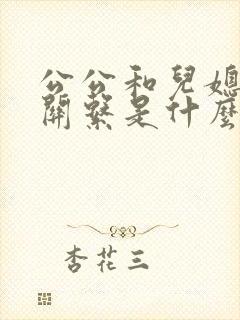 公公和兒媳
關繫是什麼
杏花三